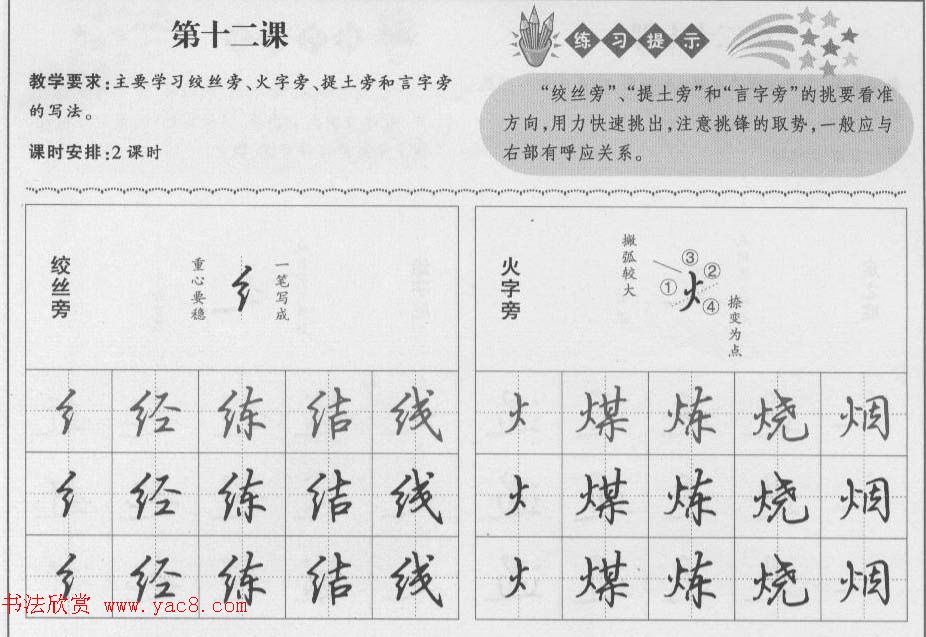 第十二课
教学要求:主要学习绞丝旁、火字旁、提土旁和言字旁
的写法。
课时安排:2 课时
练习提示
“绞丝旁”、“提土旁”和“言字旁”的挑要看准
方向,用力快速挑出,注意挑锋的取势,一般应与
右部有呼应关系。
绞丝旁
重心要稳
纟
一笔写成
纟 经 练 结 线
纟 经 练 结 线
纟 经 练 结 线
火字旁
撇弧较大
① ③ ② ④
火
捺变为点
火 煤 炼 烧 烟
火 煤 炼 烧 烟
火 煤 炼 烧 烟
书法欣赏 www.yac8.com